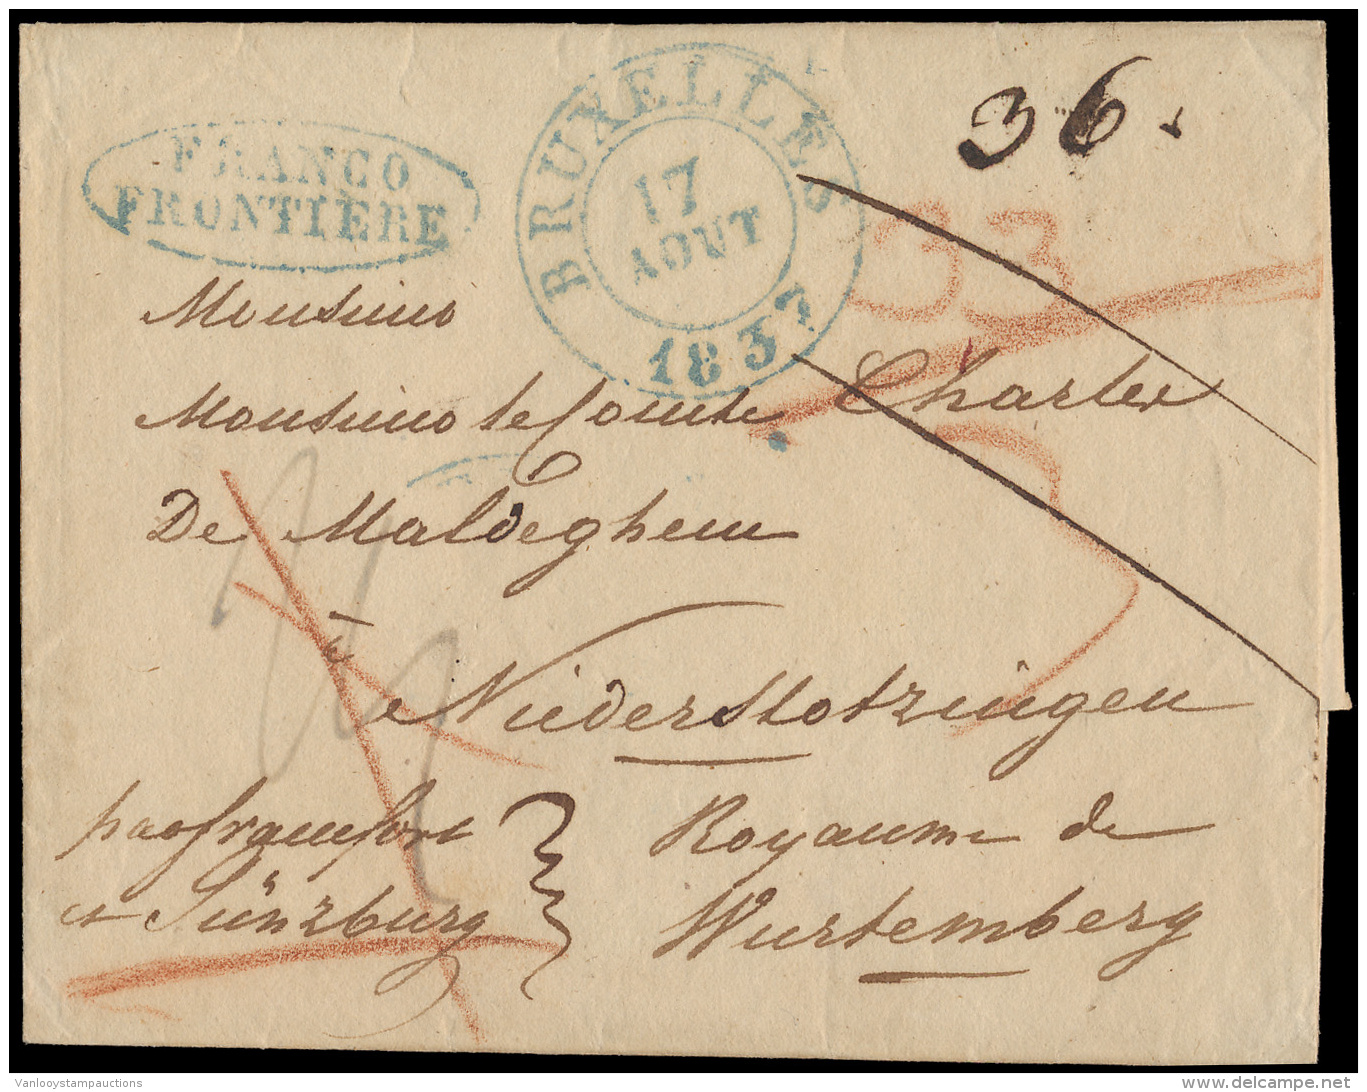 FRANCO
FRONTIÈRE
BRUXELLES
17
AOUT
1837
36.
33
Monsieur
Monsieur le Comte Charles
De Maldeghem
à
Niederstotzingen
par francfort
et Günzburg
Royaume de
Wurtemberg
Vanlooystampauctions
delcampe.net